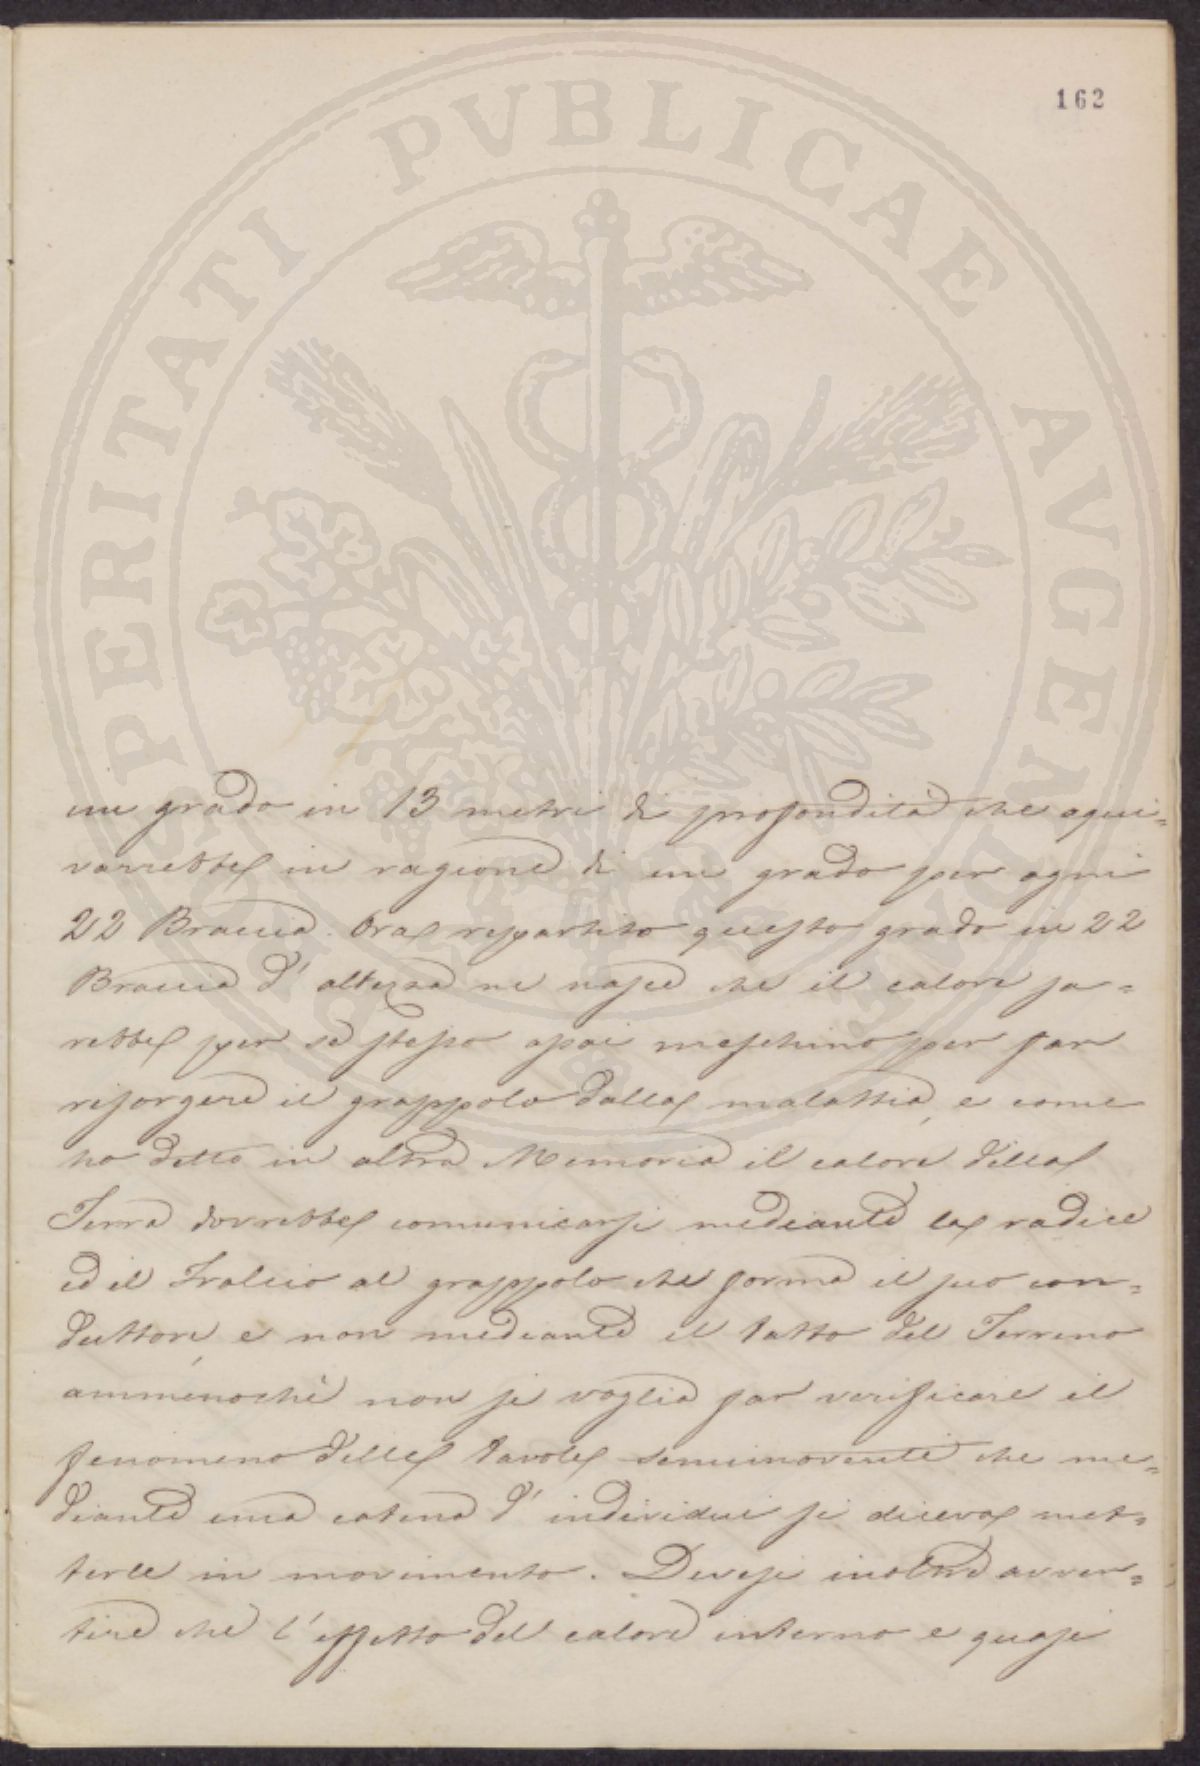 162
PROSPERITATI PVBLICAE AVGENDAE
un grado in 13 metri di profondità che equi=
varrebbe in ragione di un grado per ogni
22 Braccia. Ora repartito questo grado in 22
Braccia d' altezza ne nasce che il calore sa=
rebbe per se stesso assai meschino per far
risorgere il grappolo dalla malattia, e come
ho detto in altra Memoria il calore della
Terra dovrebbe comunicarsi mediante la radice
ed il Tralcio al grappolo che forma il suo con=
duttore, e non mediante il tatto del Terreno
ammenochè non si voglia far verificare il
fenomeno delle tavole semimoventi che me=
diante una catena d' individui si diceva met=
terle in movimento. Devesi inoltre avver=
tire che l' effetto del calore interno e quasi